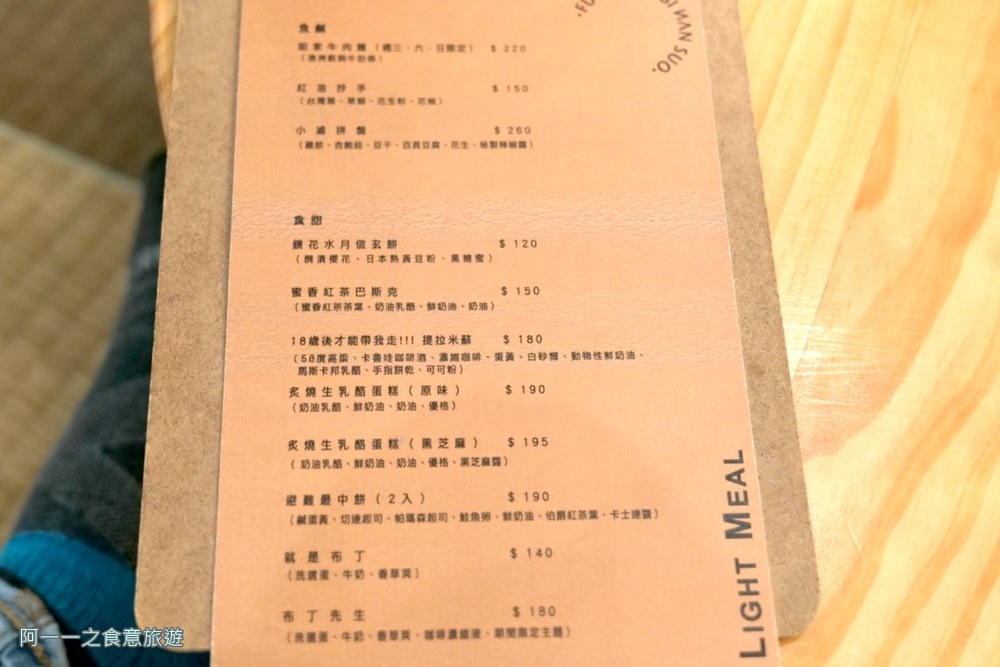 BI WAN SUO.
食鹹
咱家牛肉麵（週三、六、日限定） $ 220
紅油抄手 $ 150
（台灣豬、草蝦、花生粉、花椒）
小滷拼盤 $ 260
（雞胗、杏鮑菇、豆干、百頁豆腐、花生、秘製辣椒醬）
食甜
鏡花水月信玄餅 $ 120
（醃漬櫻花、日本熟黃豆粉、黑糖蜜）
蜜香紅茶巴斯克 $ 150
（蜜香紅茶茶葉、奶油乳酪、鮮奶油、奶油）
18歲後才能帶我走!!! 提拉米蘇 $ 180
（58度高粱、卡魯哇咖啡酒、濃縮咖啡、蛋黃、白砂糖、動物性鮮奶油、
馬斯卡邦乳酪、手指餅乾、可可粉）
炙燒生乳酪蛋糕（原味） $ 190
（奶油乳酪、鮮奶油、奶油、優格）
炙燒生乳酪蛋糕（黑芝麻） $ 195
（奶油乳酪、鮮奶油、奶油、優格、黑芝麻醬）
避難最中餅（2入） $ 190
（鹹蛋黃、切達起司、帕瑪森起司、鮭魚卵、鮮奶油、伯爵紅茶葉、卡士達醬）
就是布丁 $ 140
（洗選蛋、牛奶、香草莢）
布丁先生 $ 180
（洗選蛋、牛奶、香草莢、咖啡濃縮液、期間限定主題）
LIGHT MEAL
阿一一之食意旅遊